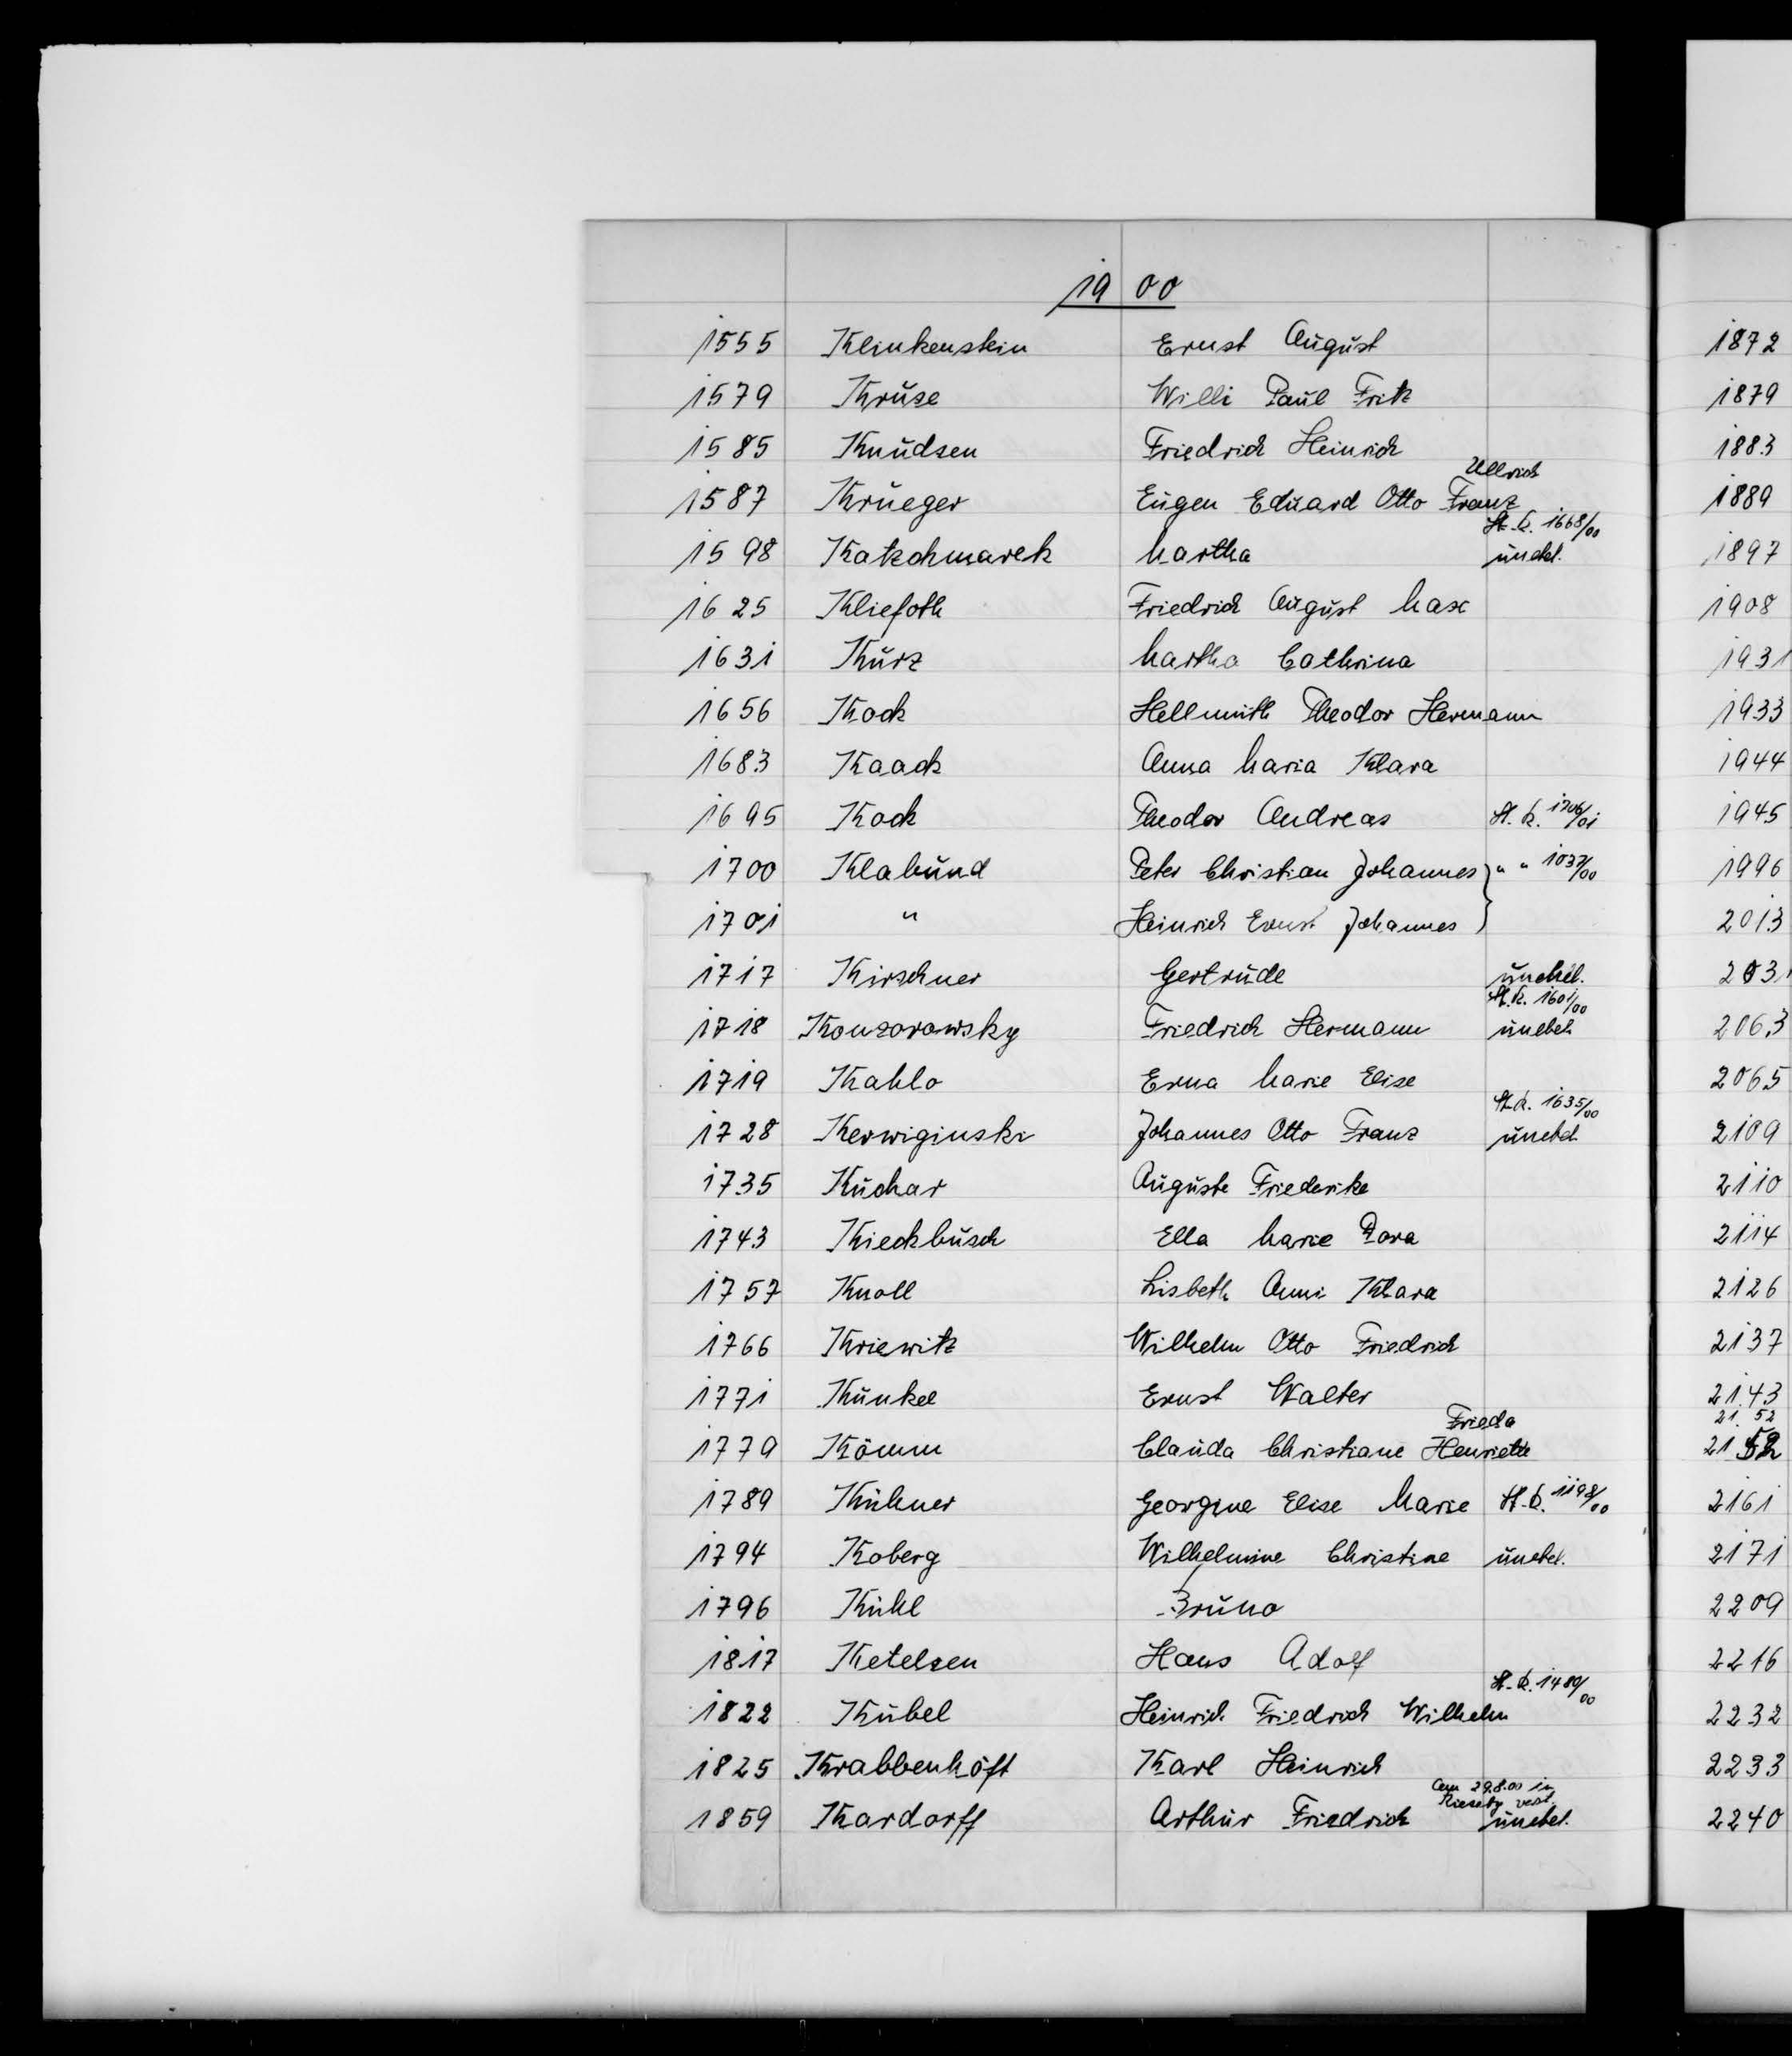 1900
1555 Klinkenstein Ernst August
1579 Kruse Willi Paul Fritz
1585 Knudsen Friedrich Heinrich
1587 Krueger Eugen Eduard Otto Franz Ullrich
1598 Katzchmarek Martha St. A. 1668/00 unehel.
1625 Kliefoth Friedrich August Max
1631 Kurz Martha Cathrina
1656 Kock Hellmuth Theodor Hermann
1683 Kaack Anna Maria Klara
1695 Kock Theodor Andreas St. A. 1706/01
1700 Klabund Peter Christian Johannes } " " 1037/00
1701 " Heinrich Ernst Johannes }
1717 Kirschner Gertrude unehel.
1718 Konzorowsky Friedrich Hermann St. A. 1601/00 unehel.
1719 Kahlo Erna Marie Elise
1728 Kerwiginski Johannes Otto Franz St. A. 1635/00 unehel.
1735 Kuchar Auguste Friederike
1743 Kieckbusch Ella Marie Dora
1757 Knoll Lisbeth Anni Klara
1766 Kriewitz Wilhelm Otto Friedrich
1771 Kunkel Ernst Walter
1779 Kömm Clauda Christiane Henriette Frieda
1789 Kühner Georgine Elise Marie St. A. 1198/00
1794 Koberg Wilhelmine Christine unehel.
1796 Kühl Bruno
1817 Ketelsen Hans Adolf
1822 Kübel Heinrich Friedrich Wilhelm St. A. 1480/00
1825 Krabbenhöft Karl Heinrich
1859 Kardorff Arthur Friedrich Am 29.8.00 in Rieseby verst. unehel.
1872
1879
1883
1889
1897
1908
1931
1933
1944
1945
1996
2013
2031
2063
2065
2109
2110
2114
2126
2137
2143
21 52
2152
2161
2171
2209
2216
2232
2233
2240